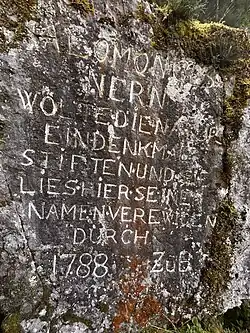 NERN
WOLTE DIE NATUR
EIN DENKMAL
STIFTEN UND
LIES·HIER·SEINEN
NAMEN VEREWIGEN
DURCH
1788 Z B